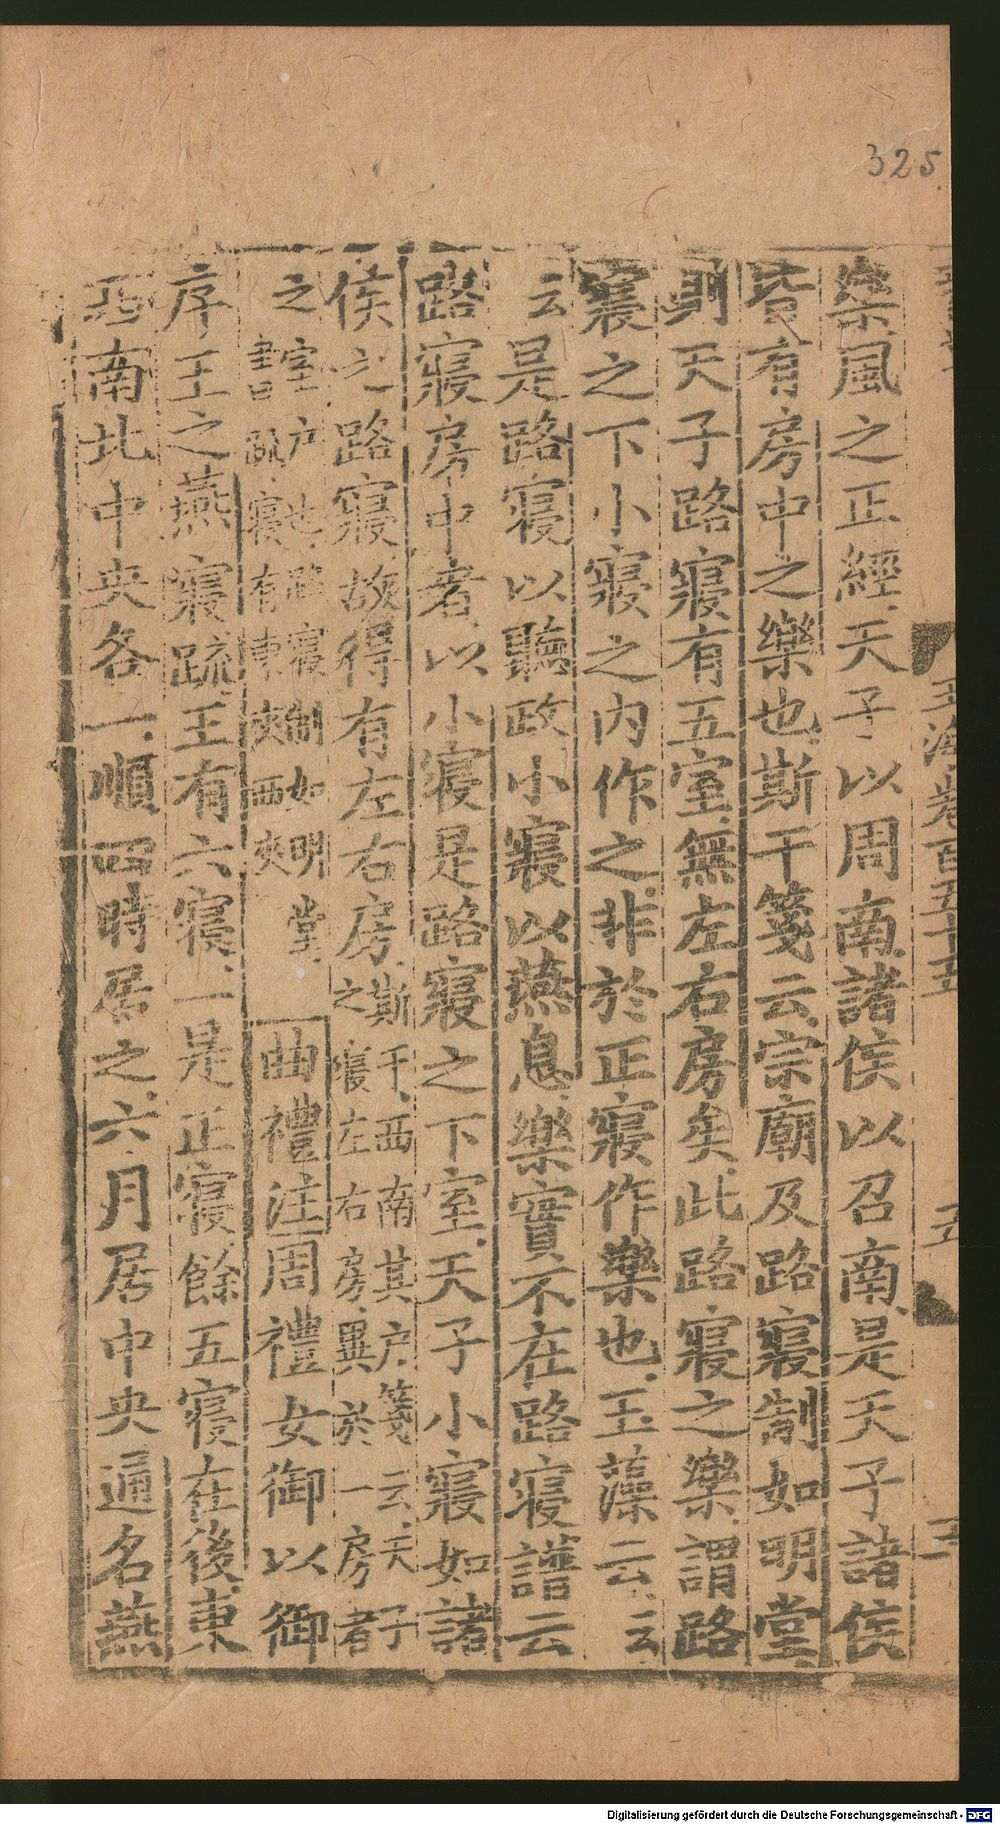 325
樂風之正經天子以周南諸侯以召南是天子諸侯
皆有房中之樂也斯干箋云宗廟及路寢制如明堂
則天子路寢有五室無左右房矣此路寢之樂謂路
寢之下小寢之內作之非於正寢作樂也玉藻云云
云是路寢以聽政小寢以燕息樂實不在路寢譜云
路寢房中者以小寢是路寢之下室天子小寢如諸
侯之路寢故得有左右房斯干西南其戶箋云天子
之寢左右房異於一房者
之室戶也路寢制如明堂
書疏寢有東夾西夾
曲禮注周禮女御以御
序王之燕寢疏王有六寢一是正寢餘五寢在後東
西南北中央各一順四時居之六月居中央通名燕
玉海卷百五十五
五
Digitalisierung gefördert durch die Deutsche Forschungsgemeinschaft - DFG